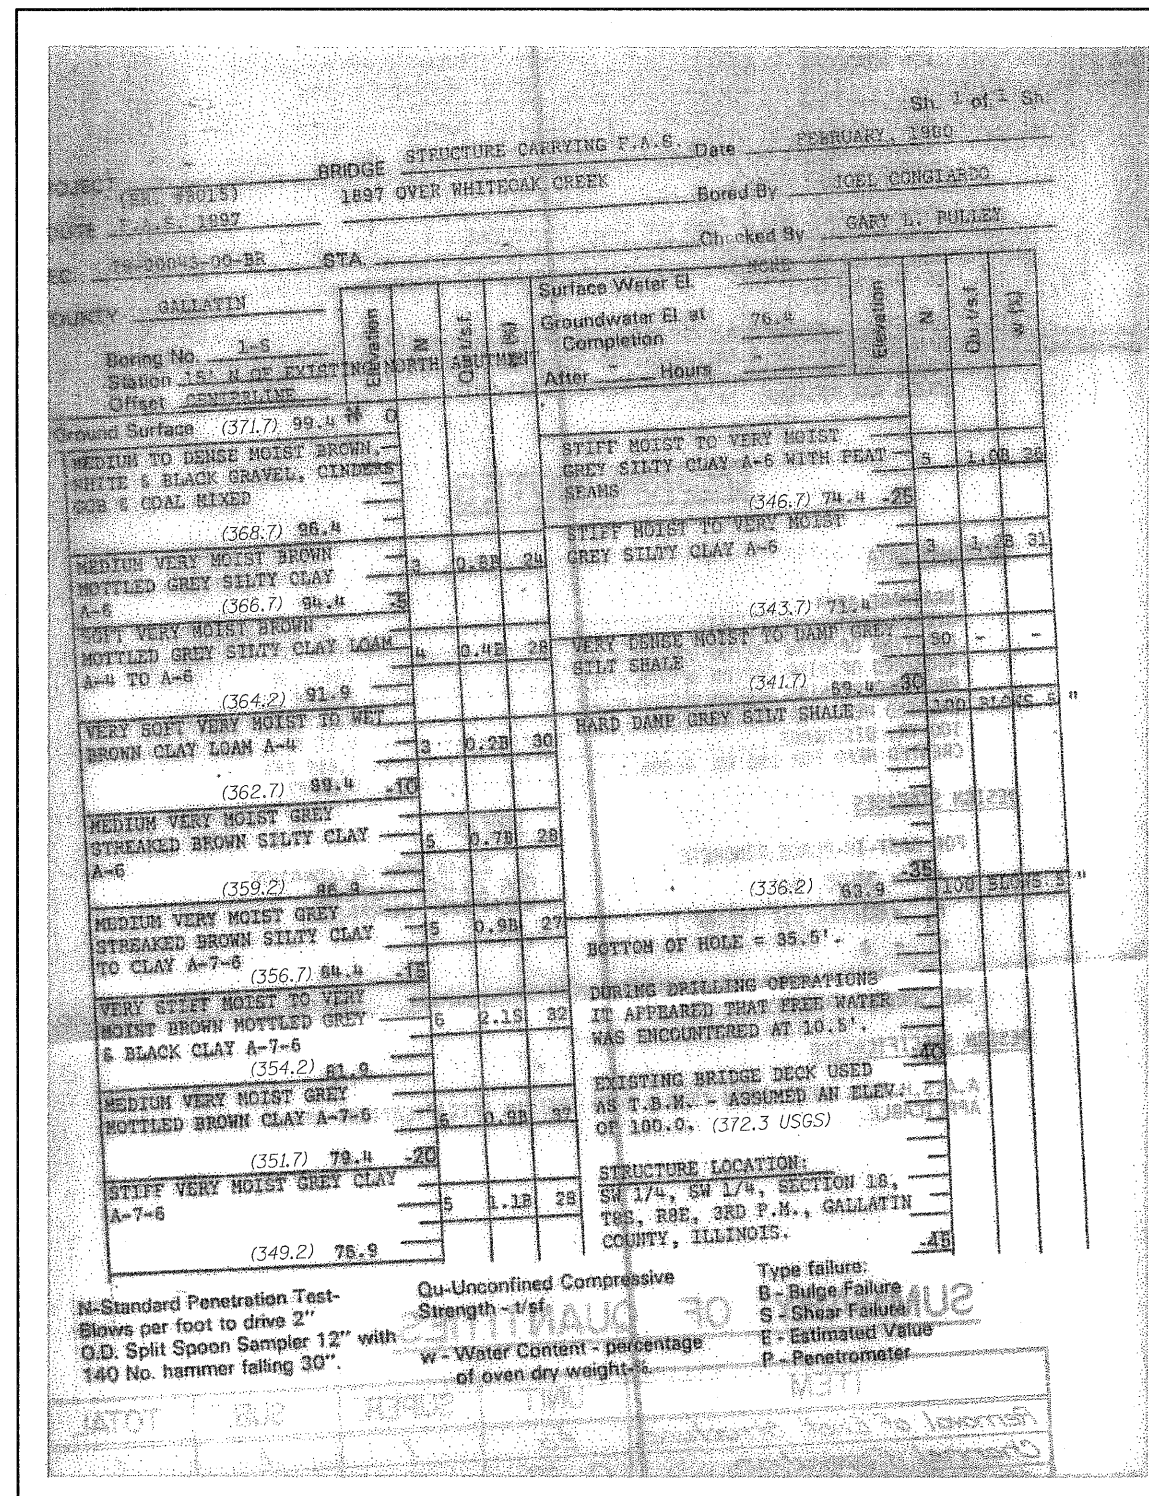 Sh. 1 of 1 Sh.
BRIDGE STRUCTURE CARRYING F.A.S. Date FEBRUARY, 1980
1897 OVER WHITEOAK CREEK
Bored By JOEL CONGIARDO
F.A.S. 1897
Checked By GARY L. PULLEY
STA.
GALLATIN
Boring No. 1-S
Station 15' N OF EXISTING NORTH ABUTMENT
Offset CENTERLINE
Elevation
N
Qu t/s.f.
(%)
Surface Water El. NONE
Groundwater El. at
Completion 76.4
After - Hours -
Elevation
N
Qu t/s.f.
w (%)
Ground Surface (371.7) 99.4 0
MEDIUM TO DENSE MOIST BROWN,
WHITE & BLACK GRAVEL, CINDERS
GOB & COAL MIXED
(368.7) 96.4
MEDIUM VERY MOIST BROWN
MOTTLED GREY SILTY CLAY
3 0.8B 24
A-6 (366.7) 94.4 -5
SOFT VERY MOIST BROWN
MOTTLED GREY SILTY CLAY LOAM
4 0.4B 28
A-4 TO A-6
(364.2) 91.9
VERY SOFT VERY MOIST TO WET
BROWN CLAY LOAM A-4
3 0.2B 30
(362.7) 89.4 -10
MEDIUM VERY MOIST GREY
STREAKED BROWN SILTY CLAY
5 0.7B 28
A-6
(359.2) 86.9
MEDIUM VERY MOIST GREY
STREAKED BROWN SILTY CLAY
5 0.9B 27
TO CLAY A-7-6
(356.7) 84.4 -15
VERY STIFF MOIST TO VERY
MOIST BROWN MOTTLED GREY
6 2.1S 32
& BLACK CLAY A-7-6
(354.2) 81.9
MEDIUM VERY MOIST GREY
MOTTLED BROWN CLAY A-7-6
6 0.9B 37
(351.7) 79.4 -20
STIFF VERY MOIST GREY CLAY
A-7-6
5 1.1B 28
(349.2) 76.9
STIFF MOIST TO VERY MOIST
GREY SILTY CLAY A-6 WITH PEAT
SEAMS
5 26
(346.7) 74.4 -25
STIFF MOIST TO VERY MOIST
GREY SILTY CLAY A-6
3 31
(343.7) 71.4
VERY DENSE MOIST TO DAMP GREY
SILT SHALE
- -
(341.7) 69.4 -30
HARD DAMP GREY SILT SHALE
100 BLOWS 6"
-35
(336.2) 63.9
100 BLOWS "
BOTTOM OF HOLE = 35.5'.
DURING DRILLING OPERATIONS
IT APPEARED THAT FREE WATER
WAS ENCOUNTERED AT 10.5'.
-40
EXISTING BRIDGE DECK USED
AS T.B.M. - ASSUMED AN ELEV.
OF 100.0. (372.3 USGS)
STRUCTURE LOCATION:
SW 1/4, SW 1/4, SECTION 18,
T8S, R8E, 3RD P.M., GALLATIN
COUNTY, ILLINOIS.
-45
N-Standard Penetration Test-
Blows per foot to drive 2"
O.D. Split Spoon Sampler 12" with
140 No. hammer falling 30".
Qu-Unconfined Compressive
Strength - t/sf
w - Water Content - percentage
of oven dry weight-%.
Type failure:
B - Bulge Failure
S - Shear Failure
E - Estimated Value
P - Penetrometer
SUMMARY OF QUANTITIES
ITEM UNIT SUPER. SUB. TOTAL
Removal of Exist. Structure